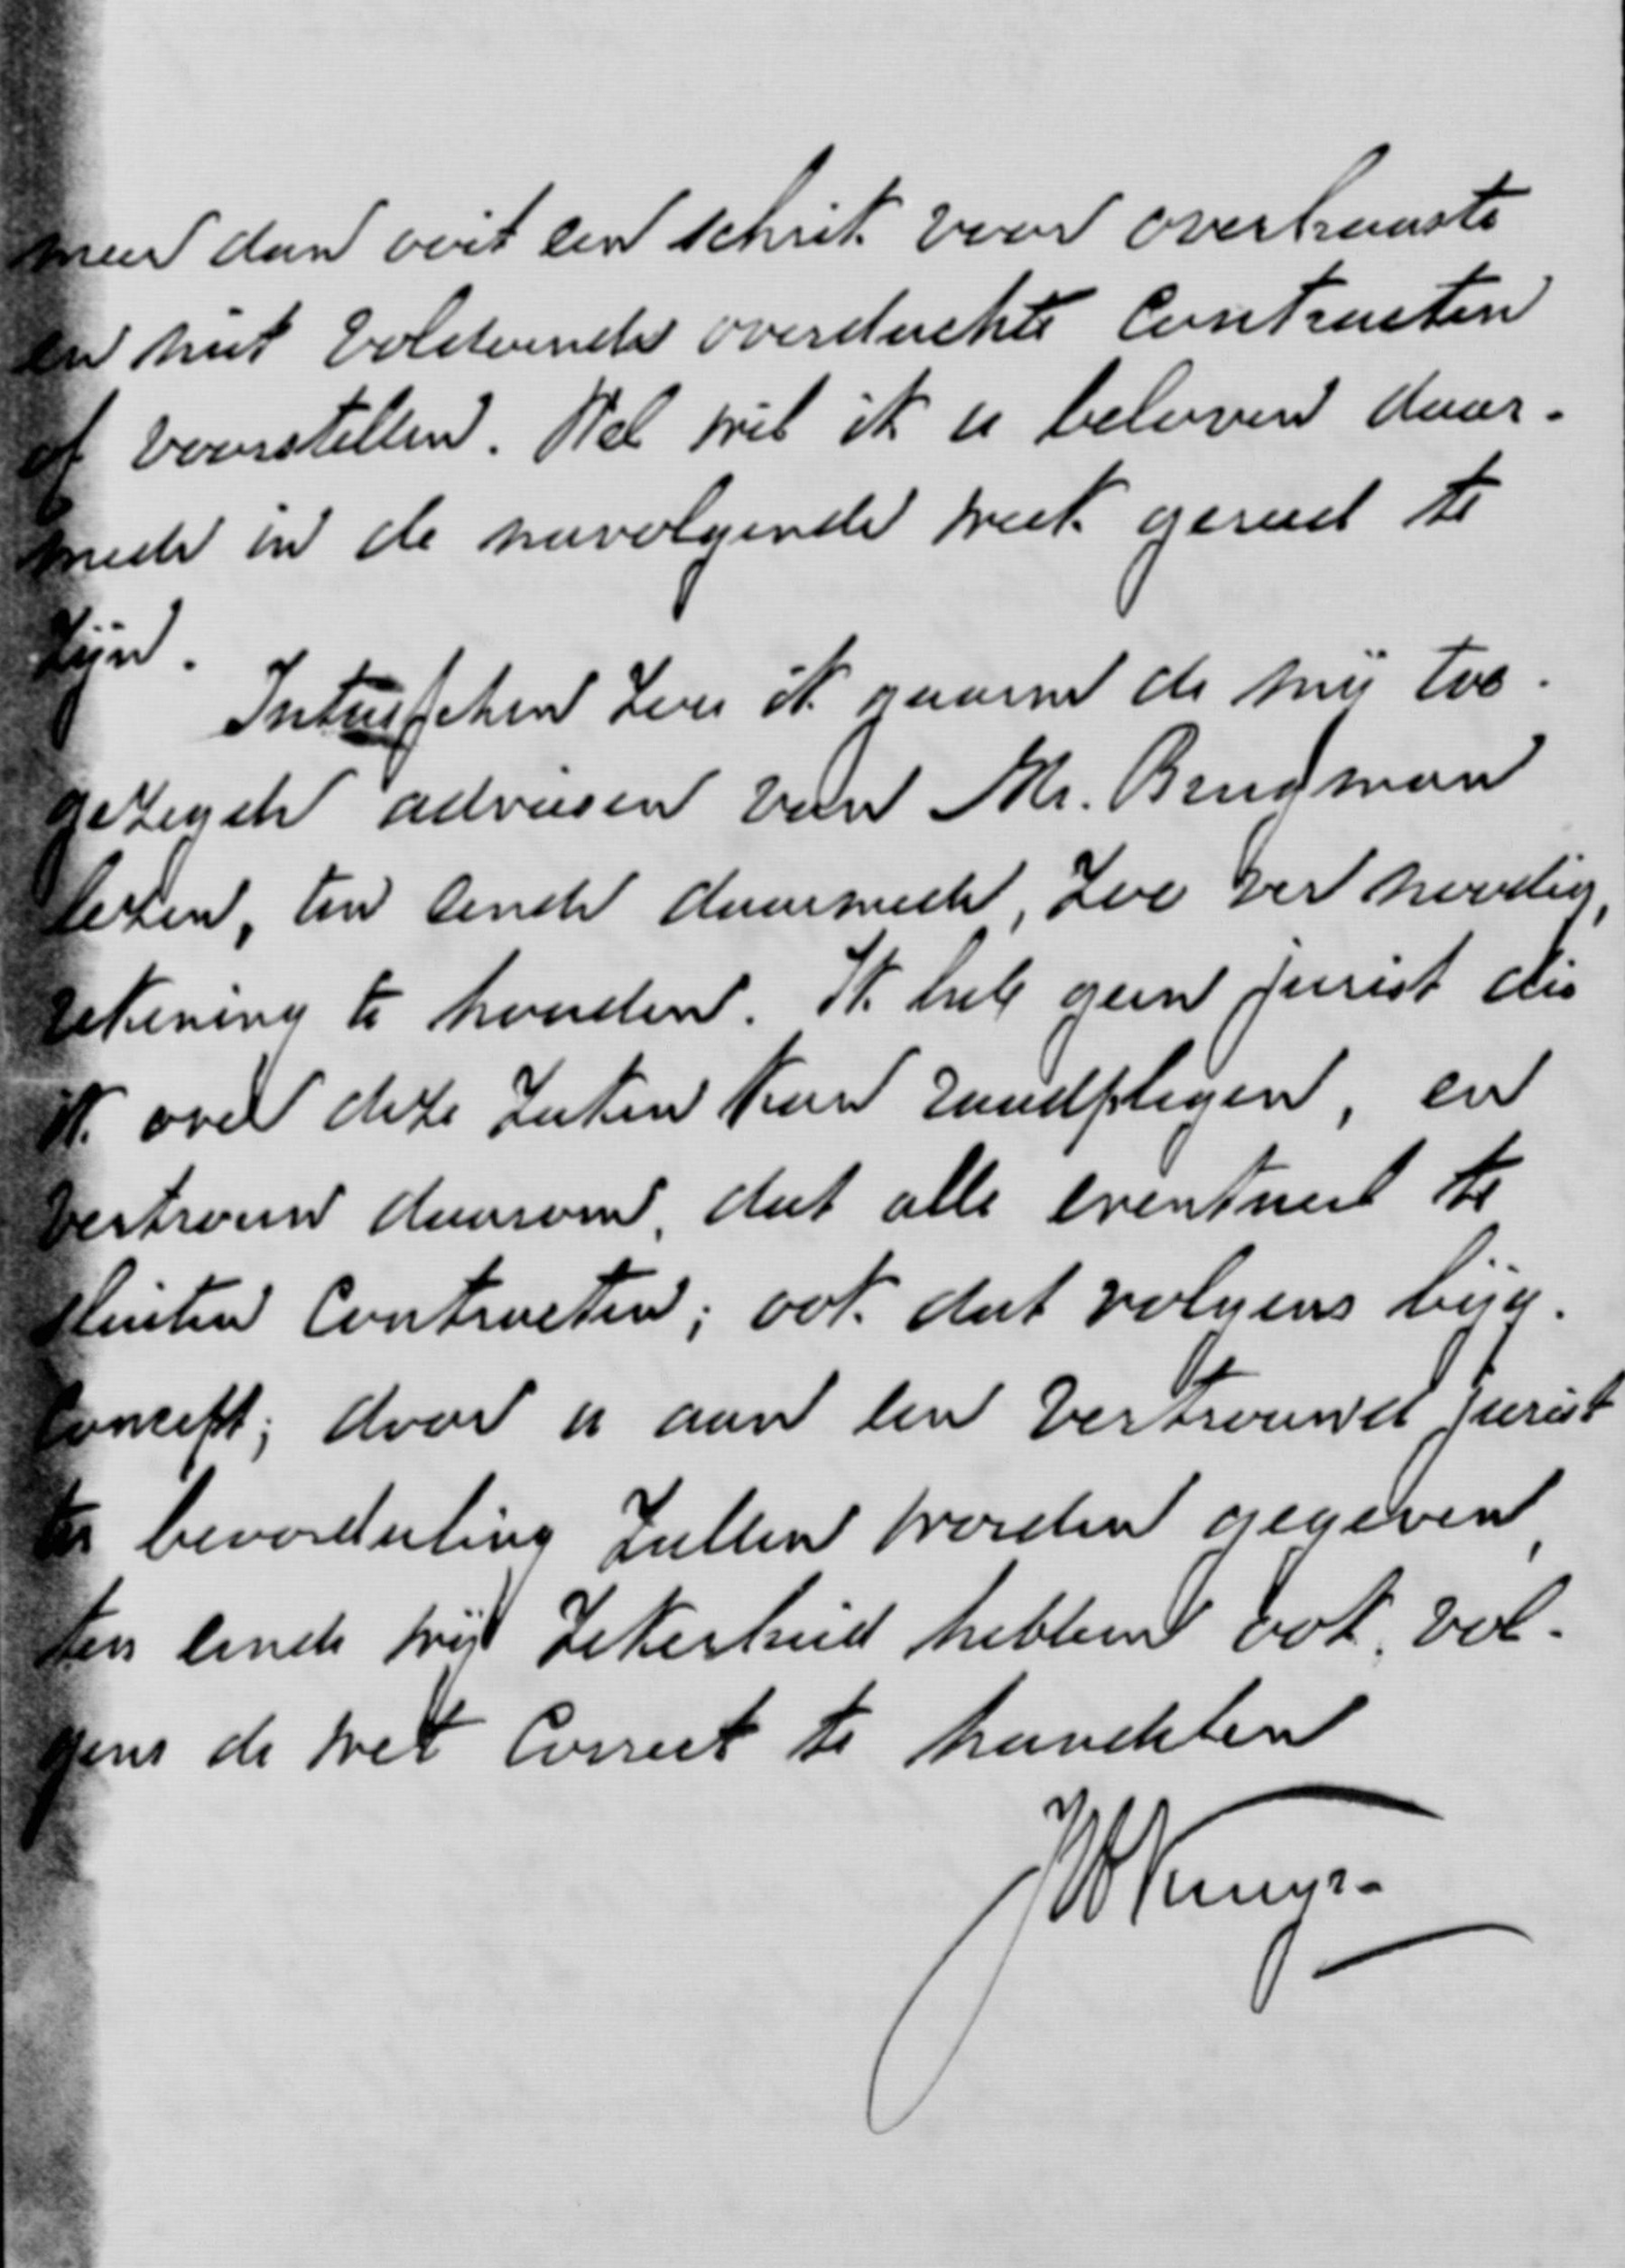 meer dan ooit een schrik voor overhaaste
en niet voldoende overdachte Contracten
of voorstellen. Wel wil ik u beloven daar-
mede in de navolgende week gereed te
zijn.
Intusschen zou ik gaarne de mij toe-
gezegde adviezen van Mr. Brugman
lezen, ten einde daarmede, zoo ver noodig,
rekening te houden. Ik heb geen jurist die
ik over deze zaken kan raadplegen, en
vertrouw daarom, dat alle eventueel te
sluiten Contracten; ook dat volgens bijg.
Concept; door u aan een vertrouwd jurist
ter beoordeeling zullen worden gegeven,
ten einde wij zekerheid hebben ook vol-
gens de wet Correct te handelen